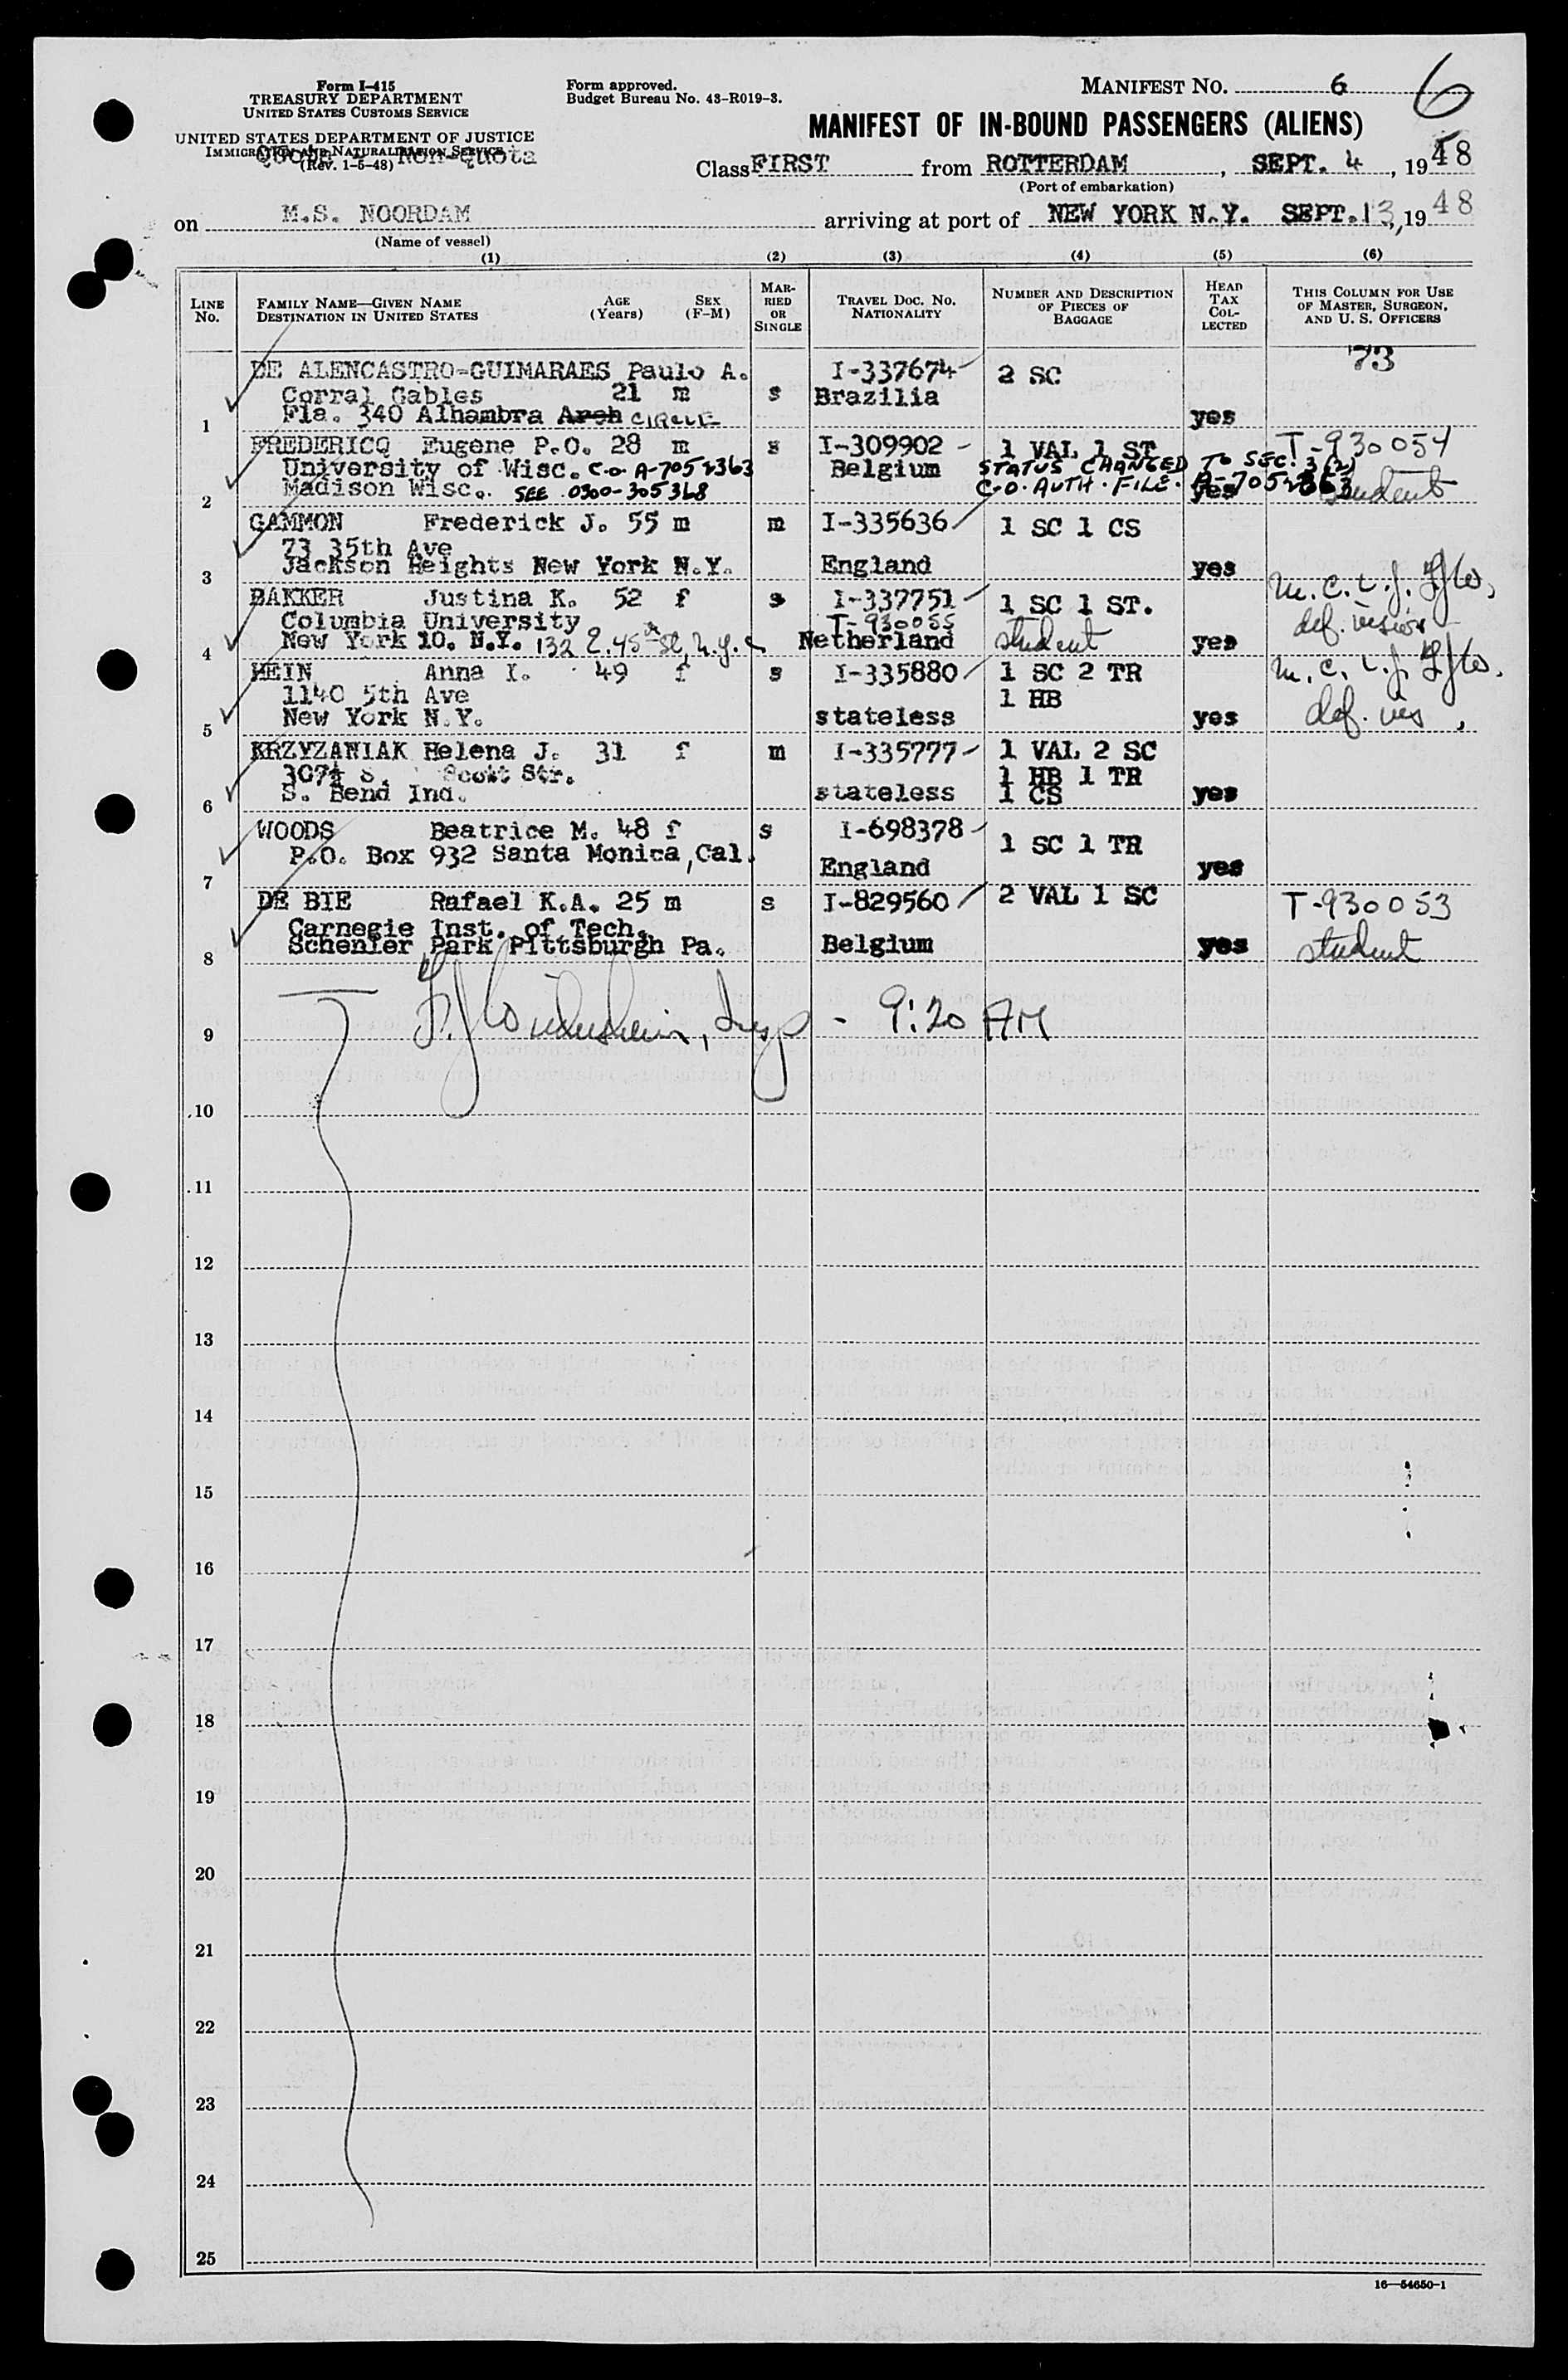 Form I-415
TREASURY DEPARTMENT
UNITED STATES CUSTOMS SERVICE
UNITED STATES DEPARTMENT OF JUSTICE
IMMIGRATION AND NATURALIZATION SERVICE
(Rev. 1-5-48)
Quota - Non-quota
Form approved.
Budget Bureau No. 43-R019-3.
MANIFEST NO. 6
6
MANIFEST OF IN-BOUND PASSENGERS (ALIENS)
Class FIRST from ROTTERDAM, SEPT. 4, 1948
(Port of embarkation)
on M.S. NOORDAM arriving at port of NEW YORK N.Y. SEPT. 13, 1948
(Name of vessel)
(1) (2) (3) (4) (5) (6)
LINE No.
FAMILY NAME—GIVEN NAME
DESTINATION IN UNITED STATES
AGE (Years)
SEX (F-M)
MARRIED OR SINGLE
TRAVEL DOC. NO.
NATIONALITY
NUMBER AND DESCRIPTION OF PIECES OF BAGGAGE
HEAD TAX COLLECTED
THIS COLUMN FOR USE OF MASTER, SURGEON, AND U. S. OFFICERS
73
DE ALENCASTRO-GUIMARAES Paulo A. I-337674 2 SC
Corral Gables 21 m s Brazilia
1 Fla. 340 Alhambra Arch CIRCLE yes
FREDERICQ Eugene P.O. 28 m s I-309902 1 VAL 1 ST T-930054
University of Wisc. C.O. A-7052363 Belgium STATUS CHANGED TO SEC. 3(2)
2 Madison Wisc. SEE 0300-305368 C.O. AUTH. FILE. A-7052363 yes student
GAMMON Frederick J. 55 m m I-335636 1 SC 1 CS
73 35th Ave
3 Jackson Heights New York N.Y. England yes
BAKKER Justina K. 52 f s I-337751 1 SC 1 ST. m.c.
Columbia University T-930055 def. vision
4 New York 10. N.Y. 132 E. 45th St, N.Y.C Netherland student yes
HEIN Anna I. 49 f s I-335880 1 SC 2 TR m.c.
1140 5th Ave 1 HB
5 New York N.Y. stateless yes def. vis
KRZYZANIAK Helena J. 31 f m I-335777 1 VAL 2 SC
307½ S. Scott Str. 1 HB 1 TR
6 S. Bend Ind. stateless 1 CS yes
WOODS Beatrice M. 48 f s I-698378 1 SC 1 TR
P.O. Box 932 Santa Monica, Cal.
7 England yes
DE BIE Rafael K.A. 25 m s I-829560 2 VAL 1 SC T-930053
Carnegie Inst. of Tech.
8 Schenler Park Pittsburgh Pa. Belgium yes student
9 Insp - 9:20 AM
10
11
12
13
14
15
16
17
18
19
20
21
22
23
24
25
16—54650-1